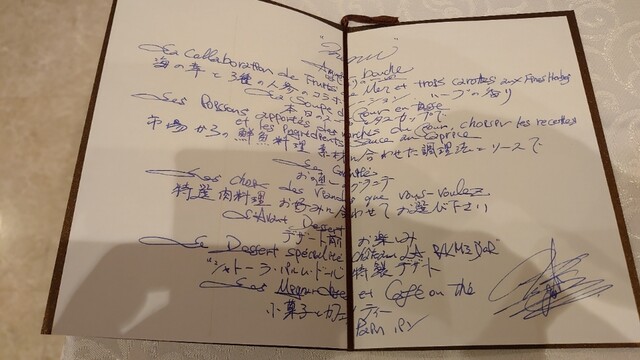 "Menu"
Amuse bouche
La Collaboration de Fruits de Mer et trois carottes aux Fines Herbes
海の幸と3種の人参のコラボレーション ハーブの香り
La Soupe du Jour en tasse
本日のスープ カップで
Les Poissons apportés des marchés du Jour, choisir les recettes
et les Ingrédients sauce au Caprice
市場からの鮮魚料理 素材に合わせた調理法とソースで
Le Granité
お口直し グラニテ
Les choix des Viandes que vous voulez
特選肉料理 お好みに合わせてお選び下さい
L'Avant Dessert
デザート前 お楽しみ
Le Dessert spécialité Château LA PALME D'OR
"シャトーラ・パルム・ドール 特製デザート
Les Mignardises et Café ou thé
小菓子とカフェ ティー